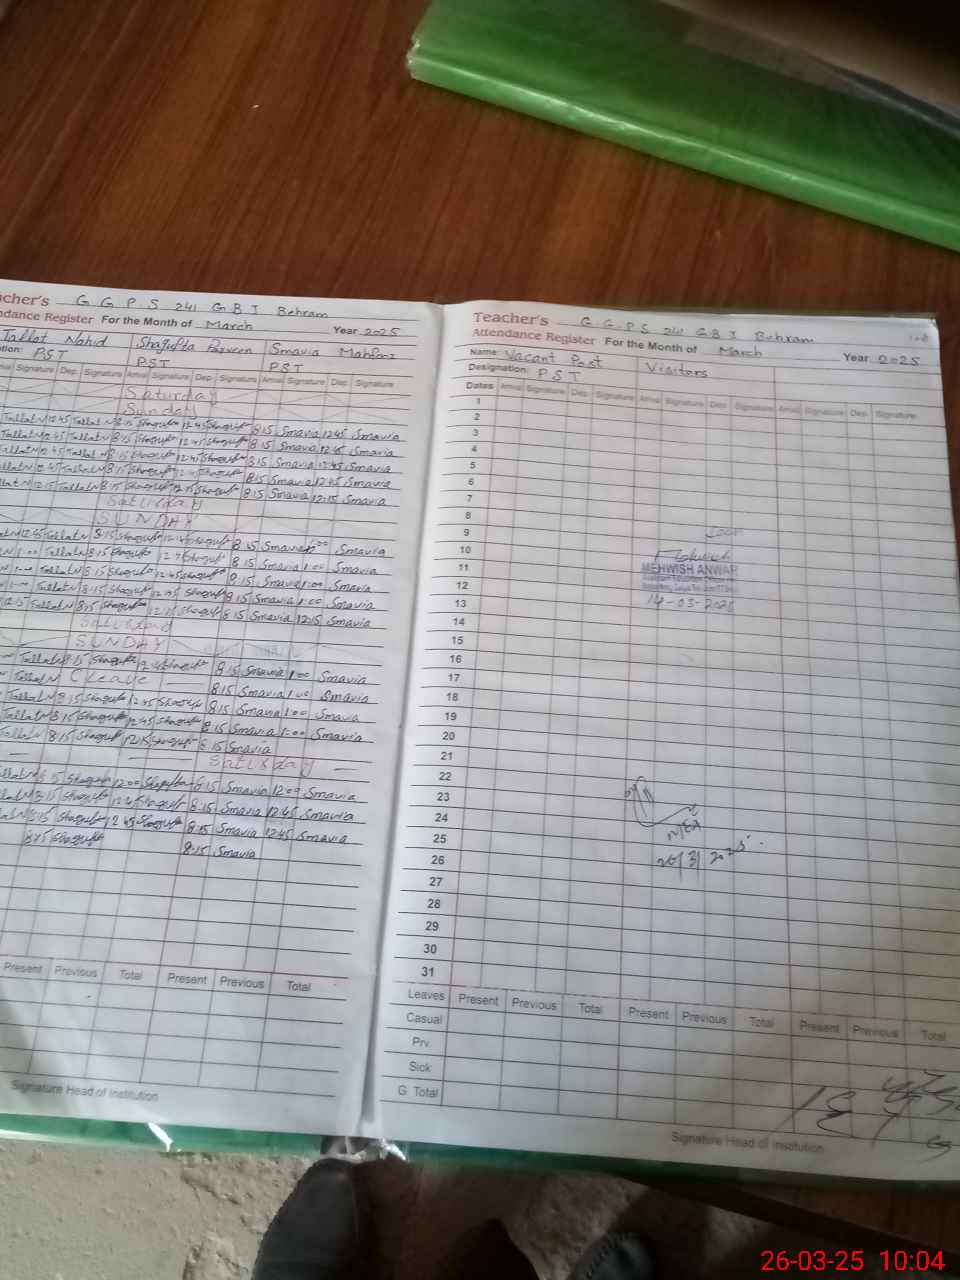 Teacher's G G P S 241 G B I Behram
Attendance Register For the Month of March Year 2025
Tallat Nahid Shagufta Parveen Smavia
PST PST PST
Signature Dep. Signature Arrival Signature Dep. Signature Arrival Signature Dep. Signature
Saturday
Sunday
Tallat N 12:45 Tallat N 8:15 Shagufta 12:45 Shagufta 8:15 Smavia 12:45 Smavia
Tallat N 12:45 Tallat N 8:15 Shagufta 12:45 Shagufta 8:15 Smavia 12:45 Smavia
Tallat N 12:45 Tallat N 8:15 Shagufta 12:45 Shagufta 8:15 Smavia 12:45 Smavia
Tallat N 12:45 Tallat N 8:15 Shagufta 12:45 Shagufta 8:15 Smavia 12:45 Smavia
Tallat N 12:15 Tallat N 8:15 Shagufta 12:15 Shagufta 8:15 Smavia 12:15 Smavia
Saturday
SUNDAY
12:45 Tallat N 8:15 Shagufta 12:45 Shagufta 8:15 Smavia 1:00 Smavia
1:00 Tallat N 8:15 Shagufta 12:45 Shagufta 8:15 Smavia 1:00 Smavia
1:00 Tallat N 8:15 Shagufta 12:45 Shagufta 8:15 Smavia 1:00 Smavia
1:00 Tallat N 8:15 Shagufta 12:45 Shagufta 8:15 Smavia 1:00 Smavia
12:15 Tallat N 8:15 Shagufta 12:15 Shagufta 8:15 Smavia 12:15 Smavia
Saturday
SUNDAY
Tallat N 8:15 Shagufta 12:45 Shagufta 8:15 Smavia 1:00 Smavia
Tallat N C Leave 8:15 Smavia 1:00 Smavia
Tallat N 8:15 Shagufta 12:45 Shagufta 8:15 Smavia 1:00 Smavia
Tallat N 8:15 Shagufta 12:45 Shagufta 8:15 Smavia 1:00 Smavia
Tallat N 8:15 Shagufta 12:15 Shagufta 8:15 Smavia
Saturday
Tallat N 8:15 Shagufta 12:00 Shagufta 8:15 Smavia 12:00 Smavia
8:15 Shagufta 12:45 Shagufta 8:15 Smavia 12:45 Smavia
8:15 Shagufta 12:45 Shagufta 8:15 Smavia 12:45 Smavia
8:15 Shagufta 8:15 Smavia
Present Previous Total Present Previous Total
Signature Head of Institution
Teacher's G G P S 241 G B I Behram
Attendance Register For the Month of March Year 2025
Name: Vacant Post Visitors
Designation: PST
Dates Arrival Signature Dep. Signature Arrival Signature Dep. Signature Arrival Signature Dep. Signature
1
2
3
4
5
6
7
8
9 Seen
10
11 MEHWISH ANWAR
12
13 14-03-2025
14
15
16
17
18
19
20
21
22
23
24
25 MEA
26 26/3/2025
27
28
29
30
31
Leaves Present Previous Total Present Previous Total Present Previous Total
Casual
Prv.
Sick
G. Total
Signature Head of Institution
26-03-25 10:04